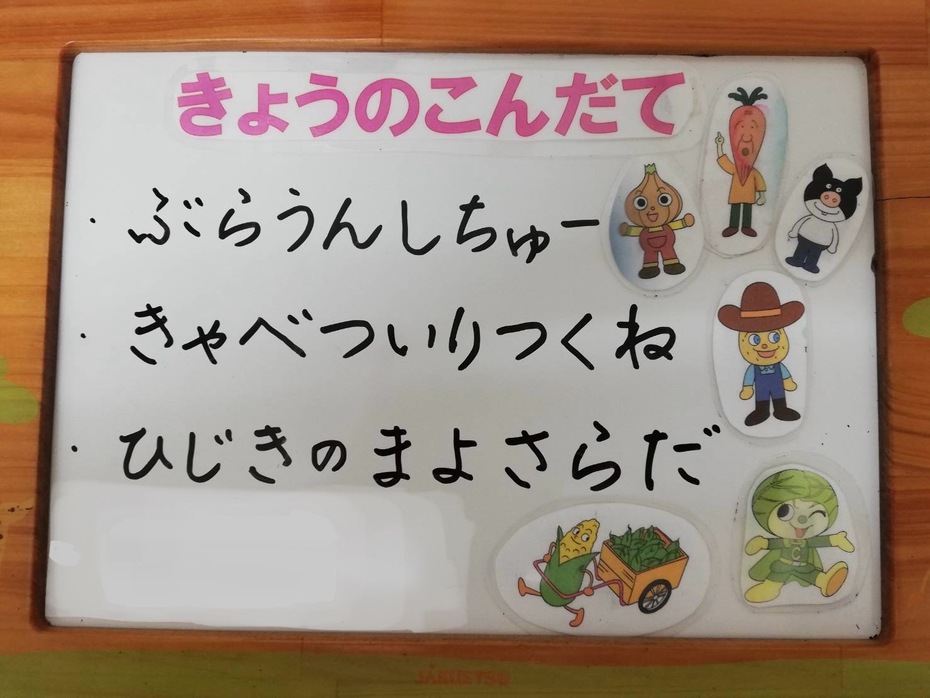 きょうのこんだて
・ぶらうんしちゅー
・きゃべついりつくね
・ひじきのまよさらだ
C
JAKUETSU